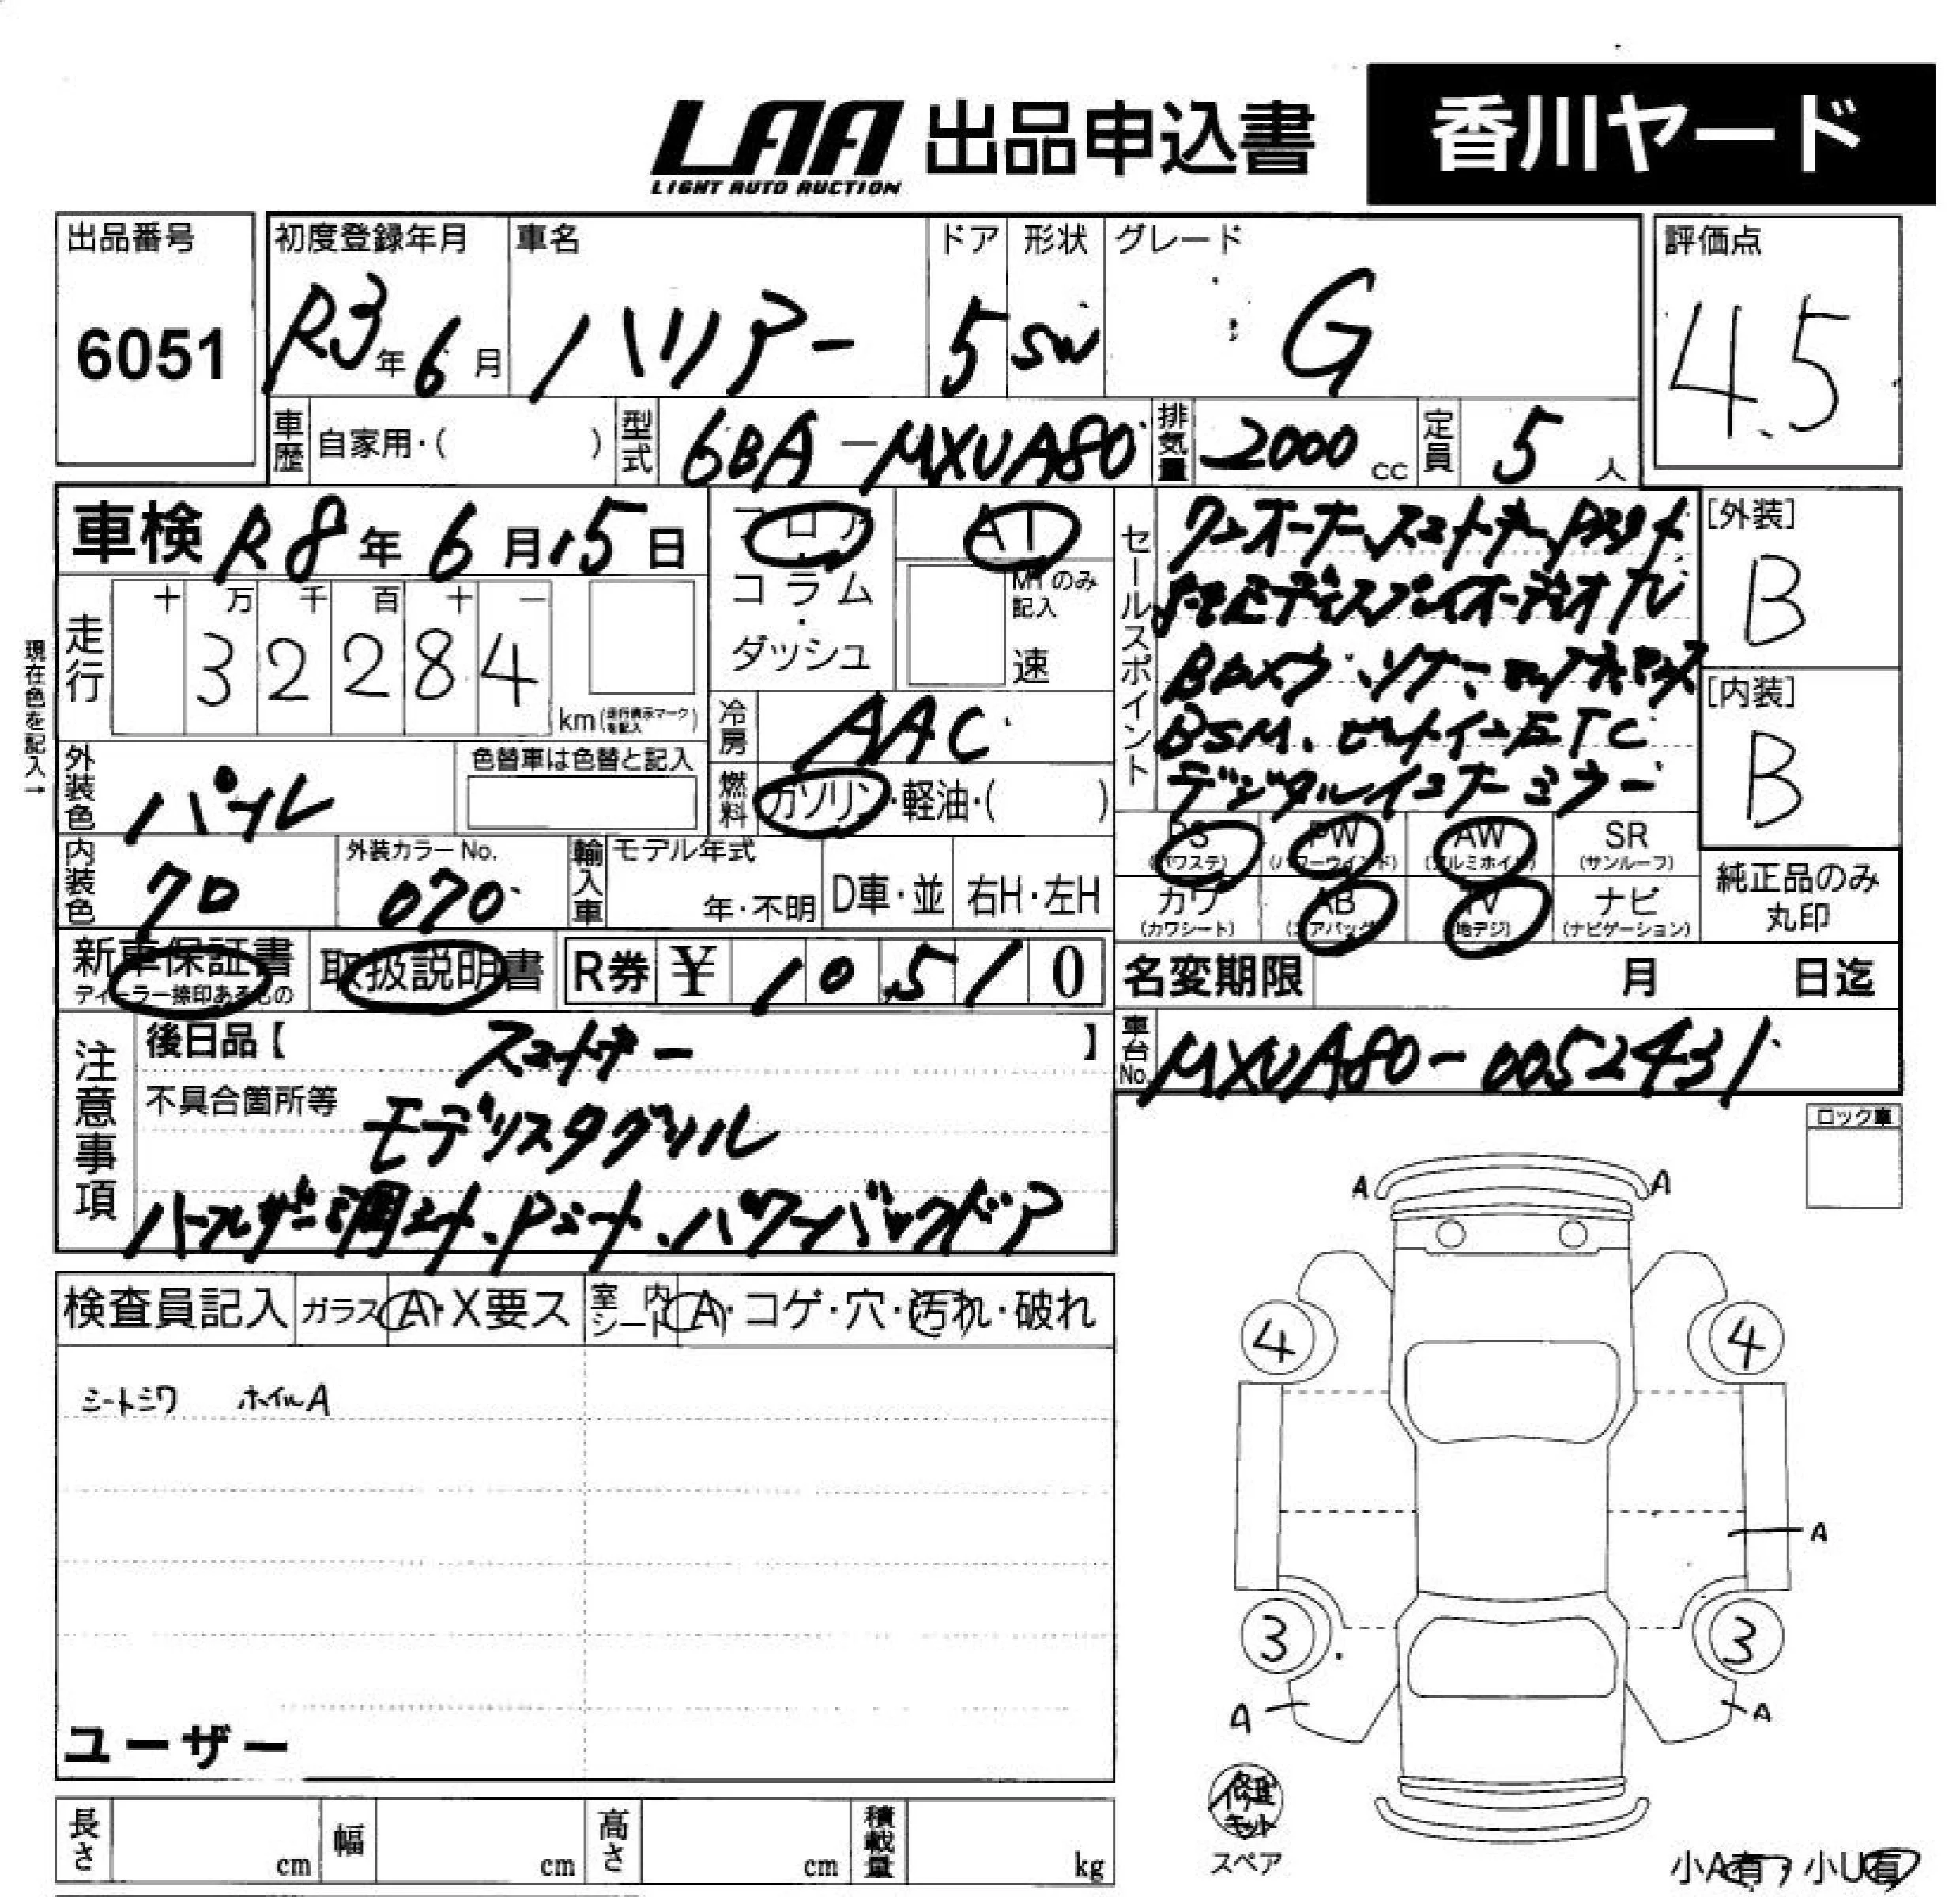 LAA 出品申込書 香川ヤード
LIGHT AUTO AUCTION
出品番号 初度登録年月 車名 ドア 形状 グレード 評価点
6051 R3年6月 ハリアー 5 SW G 4.5
車歴 自家用・( ) 型式 6BA-MXUA80 排気量 2000 cc 定員 5 人
車検 R8年6月15日
フロア
コラム
・
ダッシュ
AT
MTのみ記入
速
現在色を記入→
走行 十 万 千 百 十 一
3 2 2 8 4
km(走行表示マークを記入)
冷房 AAC
外装色 パール 色替車は色替と記入
燃料 ガソリン・軽油・( )
内装色 クロ 外装カラーNo. 070
輸入車 モデル年式 年・不明 D車・並 右H・左H
セールスポイント
ワンオーナー スマートキー
ディスプレイオーディオ
Bカメラ、ソナー
BSM、ビルトインETC
デジタルインナーミラー
[外装]
B
[内装]
B
PS (パワステ) PW (パワーウインド) AW (アルミホイル) SR (サンルーフ)
カワ (カワシート) AB (エアバッグ) TV (地デジ) ナビ (ナビゲーション)
純正品のみ丸印
新車保証書
ディーラー捺印あるもの
取扱説明書 R券 ¥ 10510
名変期限 月 日迄
車台No. MXUA80-0052431
注意事項
後日品【 】
不具合箇所等
モデリスタグリル
ハーフレザー調シート、Pシート、パワーバックドア
ロック車
検査員記入 ガラス A・X要ス 室内シート A・コゲ・穴・汚れ・破れ
シートシワ ホイルA
ユーザー
A A
4 4
A
3 3
A A
修理キット
スペア
小A有・小U有
長さ cm 幅 cm 高さ cm 積載量 kg